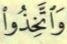 وَٱتَّخِذُوا۟